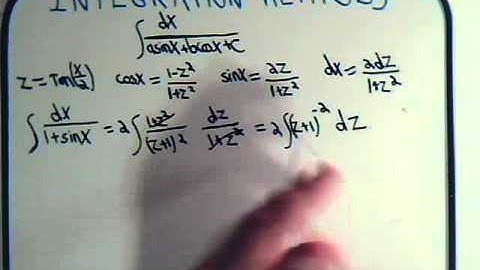 INTEGRATION METHODS
∫ dx / (a sinx + b cosx + c)
z = Tan(x/2) cosx = (1-z²)/(1+z²) sinx = 2z/(1+z²) dx = 2dz/(1+z²)
∫ dx/(1+sinx) = 2 ∫ (1+z²)/(z+1)² dz/(1+z²) = 2 ∫ (z+1)⁻² dz